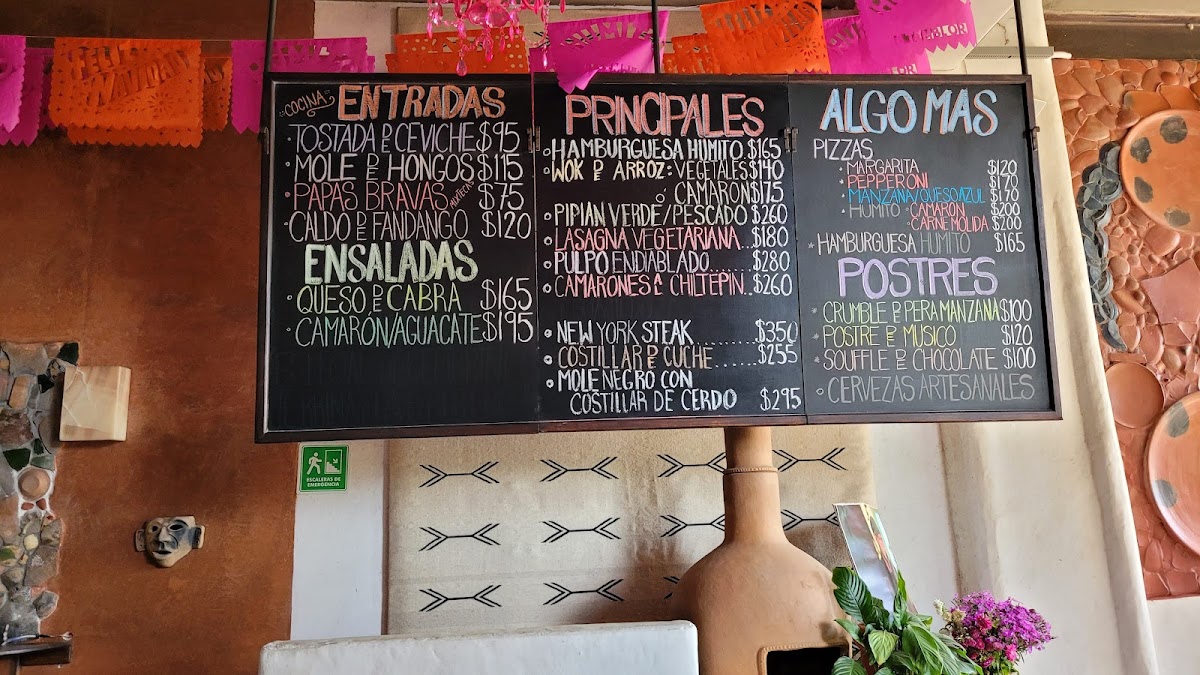 FELIZ
NAVIDAD
COCINA
ENTRADAS
TOSTADA DE CEVICHE $95
MOLE DE HONGOS $115
PAPAS BRAVAS MIXTECAS $75
CALDO DE FANDANGO $120
ENSALADAS
QUESO DE CABRA $165
CAMARON/AGUACATE $195
PRINCIPALES
HAMBURGUESA HUMITO $165
WOK DE ARROZ: VEGETALES $140
Ó CAMARON $175
PIPIAN VERDE/PESCADO $260
LASAGNA VEGETARIANA.. $180
PULPO ENDIABLADO...... $280
CAMARONES AL CHILTEPIN.. $260
NEW YORK STEAK ......... $350
COSTILLAR DE CUCHE...... $255
MOLE NEGRO CON
COSTILLAR DE CERDO $295
ALGO MAS
PIZZAS
MARGARITA $120
PEPPERONI $170
MANZANA/QUESO AZUL $170
HUMITO CAMARON $200
CARNE MOLIDA $200
HAMBURGUESA HUMITO $165
POSTRES
CRUMBLE DE PERA MANZANA $100
POSTRE DE MUSICO $120
SOUFFLE DE CHOCOLATE $100
CERVEZAS ARTESANALES
ESCALERAS DE
EMERGENCIA